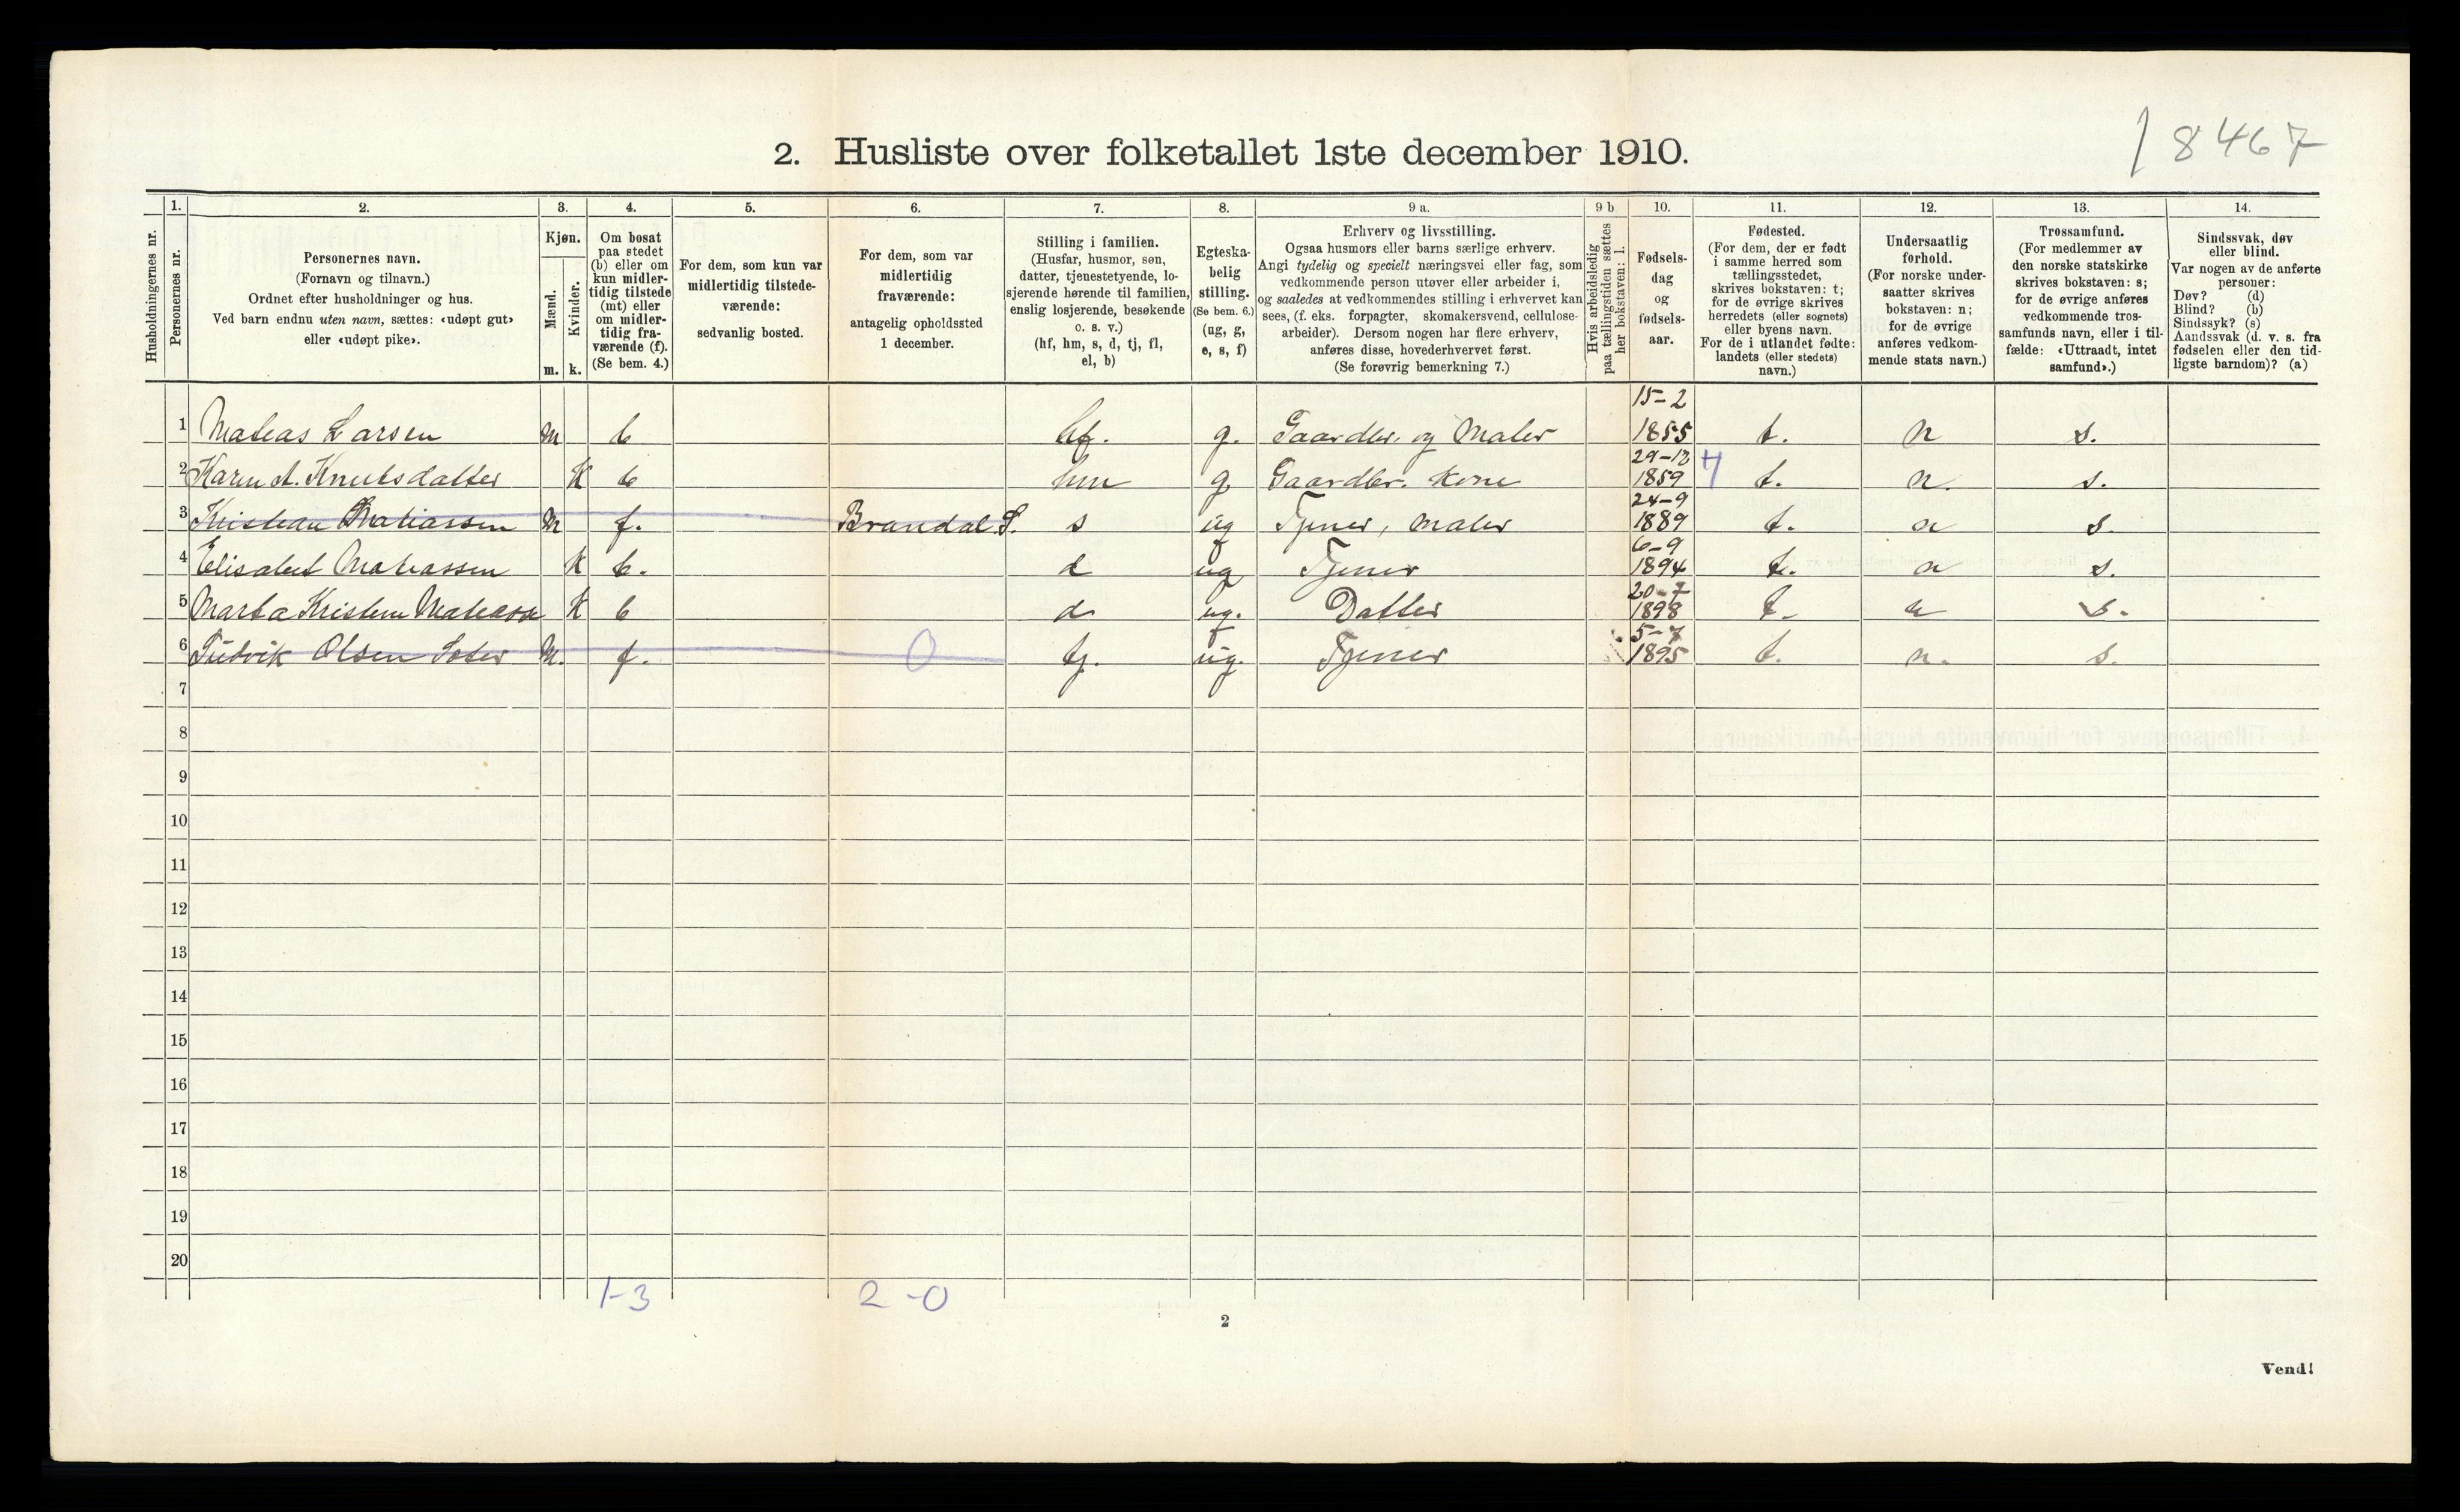 2. Husliste over folketallet 1ste december 1910.
18467
Husholdningernes nr.
1.
Personernes nr.
2.
Personernes navn.
(Fornavn og tilnavn.)
Ordnet efter husholdninger og hus.
Ved barn endnu uten navn, sættes: «udøpt gut»
eller «udøpt pike».
3.
Kjøn.
Mænd.
Kvinder.
m. k.
4.
Om bosat
paa stedet
(b) eller om
kun midler-
tidig tilstede
(mt) eller
om midler-
tidig fra-
værende (f).
(Se bem. 4.)
5.
For dem, som kun var
midlertidig tilstede-
værende:
sedvanlig bosted.
6.
For dem, som var
midlertidig
fraværende:
antagelig opholdssted
1 december.
7.
Stilling i familien.
(Husfar, husmor, søn,
datter, tjenestetyende, lo-
sjerende hørende til familien,
enslig losjerende, besøkende
o. s. v.)
(hf, hm, s, d, tj, fl,
el, b)
8.
Egteska-
belig
stilling.
(Se bem. 6.)
(ug, g,
e, s, f)
9 a.
Erhverv og livsstilling.
Ogsaa husmors eller barns særlige erhverv.
Angi tydelig og specielt næringsvei eller fag, som
vedkommende person utøver eller arbeider i,
og saaledes at vedkommendes stilling i erhvervet kan
sees, (f. eks. forpagter, skomakersvend, cellulose-
arbeider). Dersom nogen har flere erhverv,
anføres disse, hovederhvervet først.
(Se forøvrig bemerkning 7.)
9 b
Hvis arbeidsledig
paa tællingstiden sættes
her bokstaven: l.
10.
Fødsels-
dag
og
fødsels-
aar.
11.
Fødested.
(For dem, der er født
i samme herred som
tællingsstedet,
skrives bokstaven: t;
for de øvrige skrives
herredets (eller sognets)
eller byens navn.
For de i utlandet fødte:
landets (eller stedets)
navn.)
12.
Undersaatlig
forhold.
(For norske under-
saatter skrives
bokstaven: n;
for de øvrige
anføres vedkom-
mende stats navn.)
13.
Trossamfund.
(For medlemmer av
den norske statskirke
skrives bokstaven: s;
for de øvrige anføres
vedkommende tros-
samfunds navn, eller i til-
fælde: «Uttraadt, intet
samfund».)
14.
Sindssvak, døv
eller blind.
Var nogen av de anførte
personer:
Døv? (d)
Blind? (b)
Sindssyk? (s)
Aandssvak (d. v. s. fra
fødselen eller den tid-
ligste barndom)? (a)
1 Mateas Larsen m b hf. g. Gaardbr. og Maler 15-2 1855 t. n s.
2 Karen A. Knutsdatter K b hm g Gaardbr. Kone 29-12 1859 t. n. s.
3 Kristian Matiassen M f. Brandal S. s ug Tjener, Maler 24-9 1889 t. n s.
4 Elisabet Matiassen K b. d ug Tjener 6-9 1894 t. n s.
5 Marta Kristine K b d ug. Datter 20-7 1898 t. n s.
6 Ludvik Olsen M. f. 0 tj. ug. Tjener 5-7 1895 t. n. s.
7
8
9
10
11
12
13
14
15
16
17
18
19
20
1-3 2-0
2
Vend!